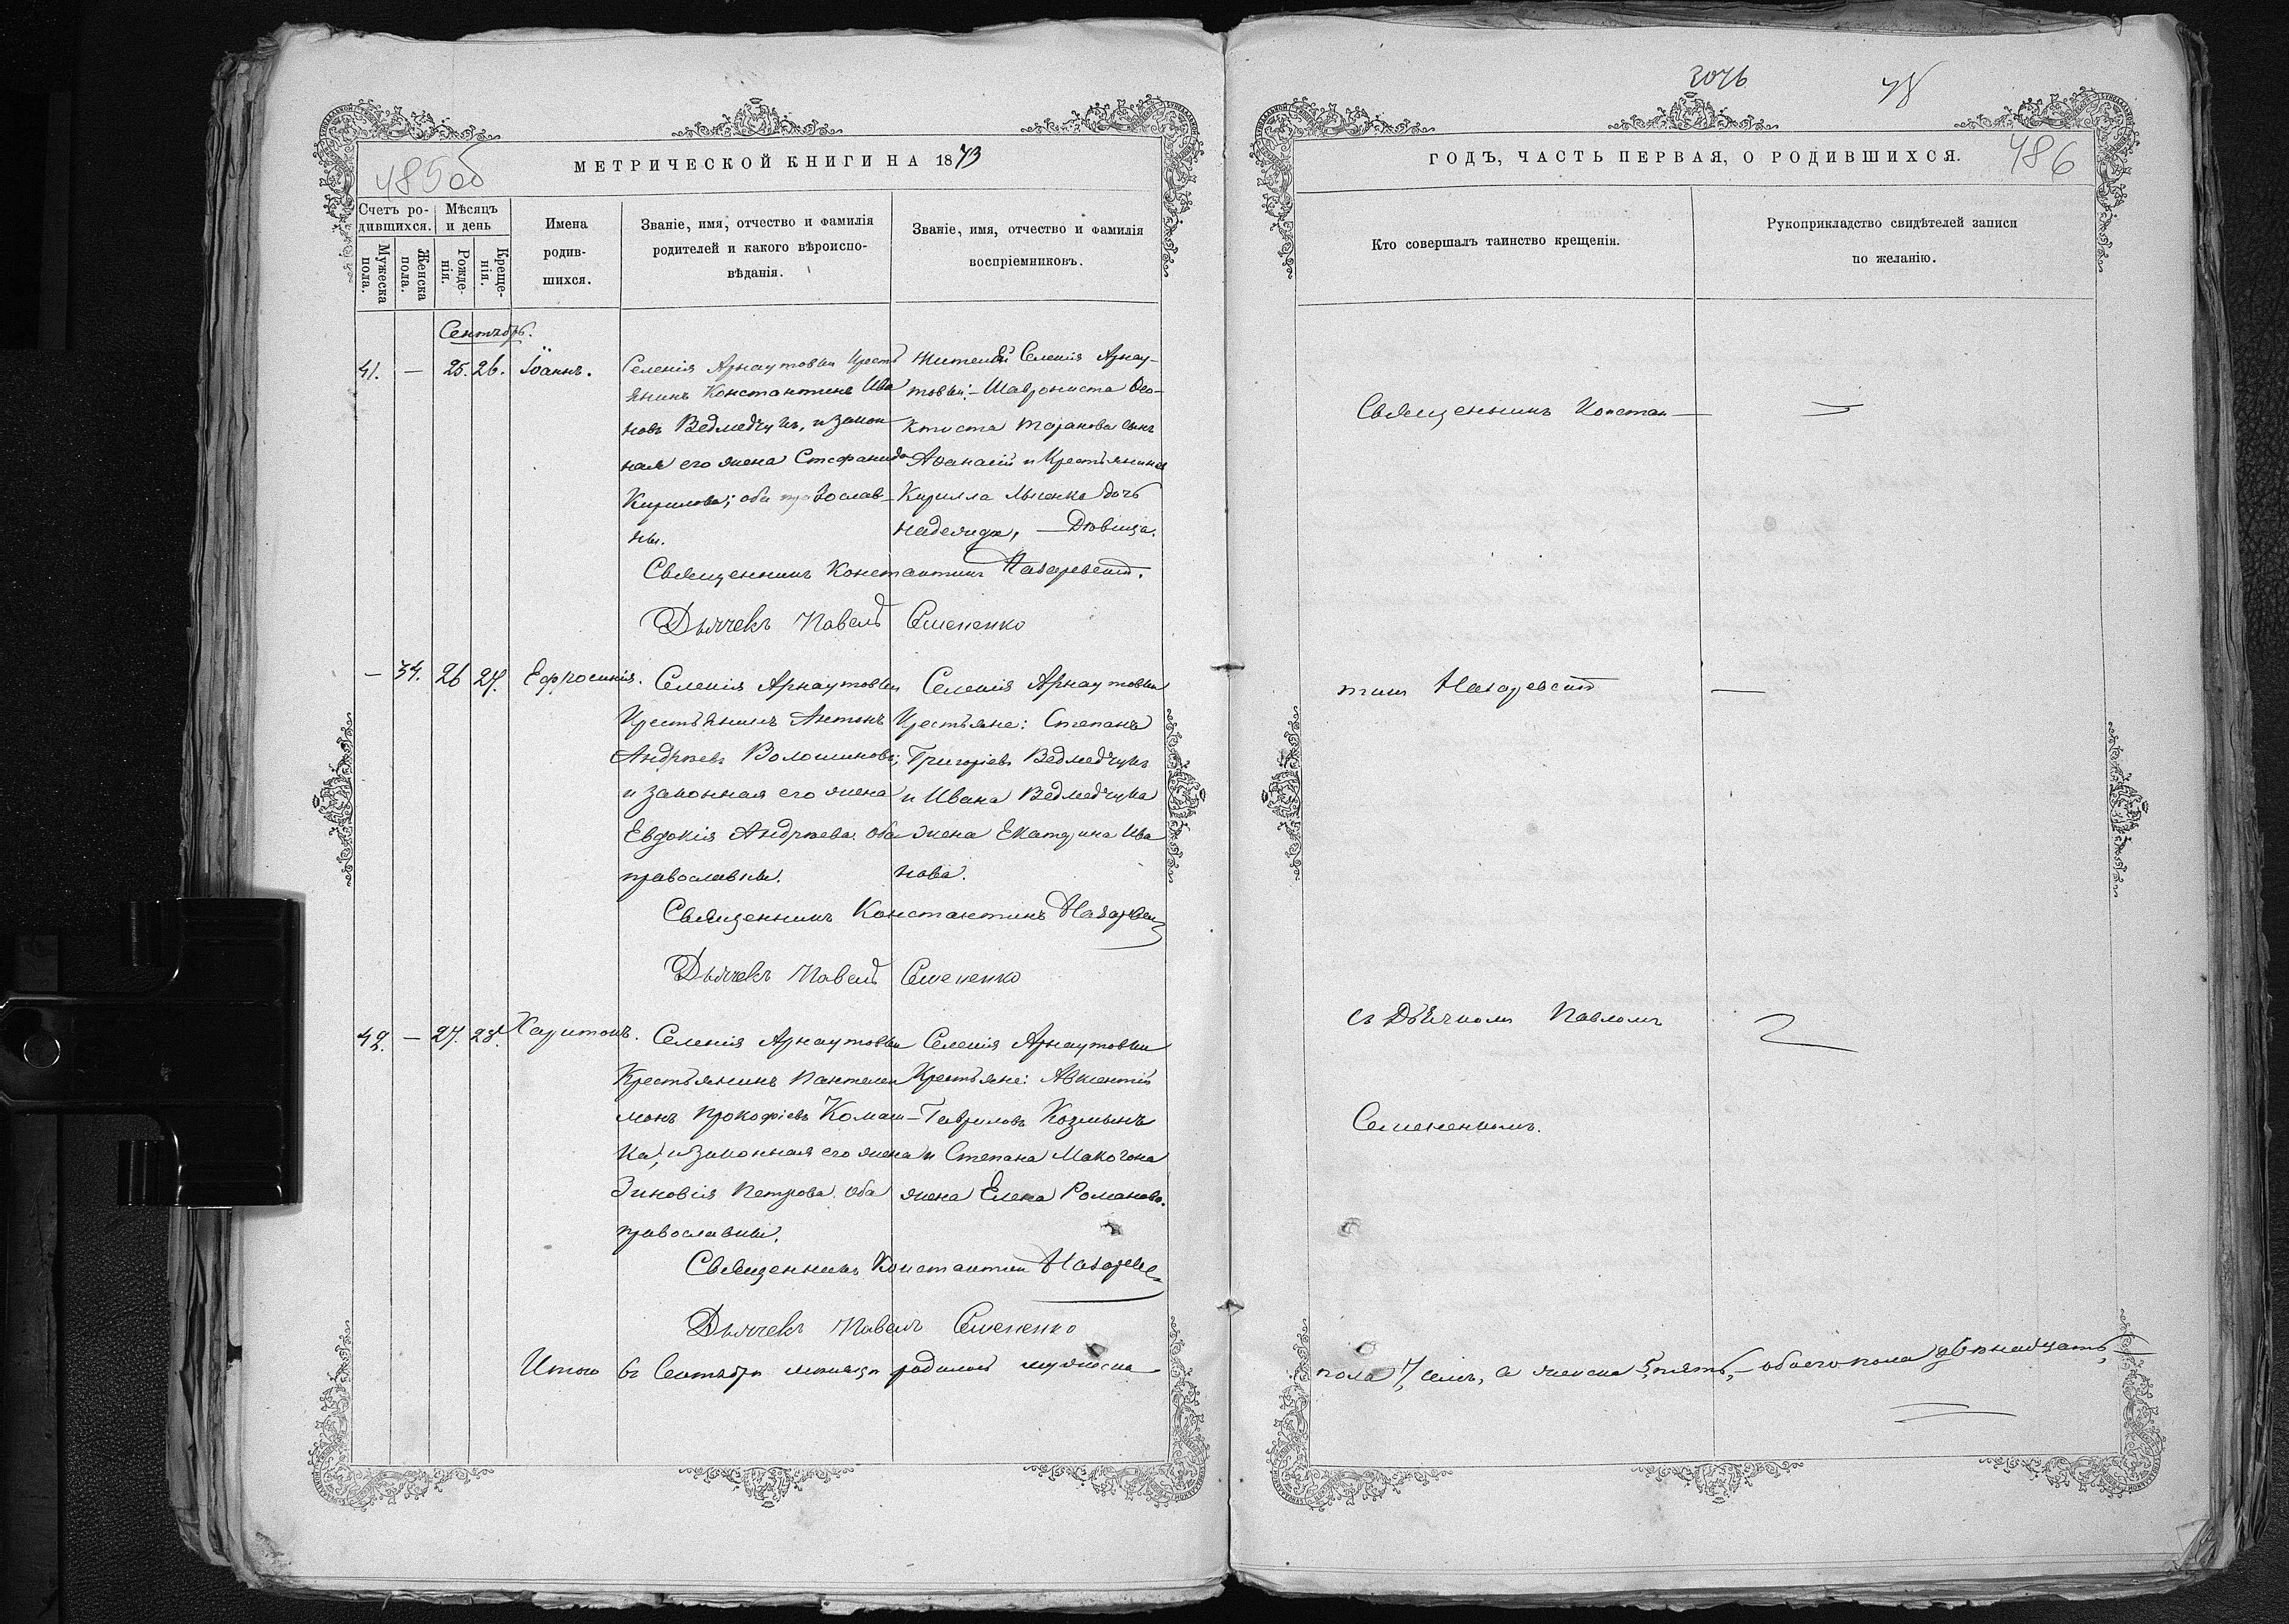 485об
МЕТРИЧЕСКОЙ КНИГИ НА 1873
Счетъ ро-
дившихся.
Мѣсяцъ
и день
Мужеска
пола.
Женска
пола.
Рожде-
нія.
Креще-
нія.
Имена
родив-
шихся.
Званіе, имя, отчество и фамилія
родителей и какого вѣроиспо-
вѣданія.
Званіе, имя, отчество и фамилія
воспріемниковъ.
Сентябрь.
41. — 25. 26. Іоаннъ.
Селенія Арнаутовки Крестъ
янинъ Константинъ Ива
новъ Ведмедчукъ, и закон
ная его жена Стефанида
Кирилова; оба православ-
ны.
Жители Селенія Арнау-
товки: —
Афанасій и Крестьянина
Кирилла Лысенка дочь
Надежда, — Дѣвица.
Священникъ Константинъ Назаревскій.
Дьячекъ Павелъ Семененко
— 34. 26 27. Ефросинія.
Селенія Арнаутовки
Крестьянинъ Антонъ
Андреевъ Волошиновъ;
и законная его жена
Евдокія Андреева. Оба
православны.
Селенія Арнаутовки
Крестьяне: Степанъ
Григоріевъ Ведмедчукъ
и Ивана Ведмедчука
жена Екатерина Ива
нова.
Священникъ Константинъ
Дьячекъ Павелъ Семененко
42. — 27. 28. Харитонъ.
Селенія Арнаутовки
Крестьянинъ Пантелеи
монъ Прокофіевъ Комаш-
ка, и законная его жена
Зиновія Петрова. Оба
православны.
Селенія Арнаутовки
Крестьяне: Авксентій
Гавриловъ Козмынъ
и Степана Макогона
жена Елена Романова.
Священникъ Константинъ
Дьячекъ Павелъ Семененко
Итого въ Сентябрѣ мѣсяцѣ родилось мужеска
486
ГОДЪ, ЧАСТЬ ПЕРВАЯ, О РОДИВШИХСЯ.
Кто совершалъ таинство крещенія.
Рукоприкладство свидѣтелей записи
по желанію.
Священникъ Констан—
тинъ Назаревскій
съ Дьячкомъ Павломъ
Семененкомъ.
пола 7, семь, а женска 5, пять, — обоего пола двѣнадцать, —